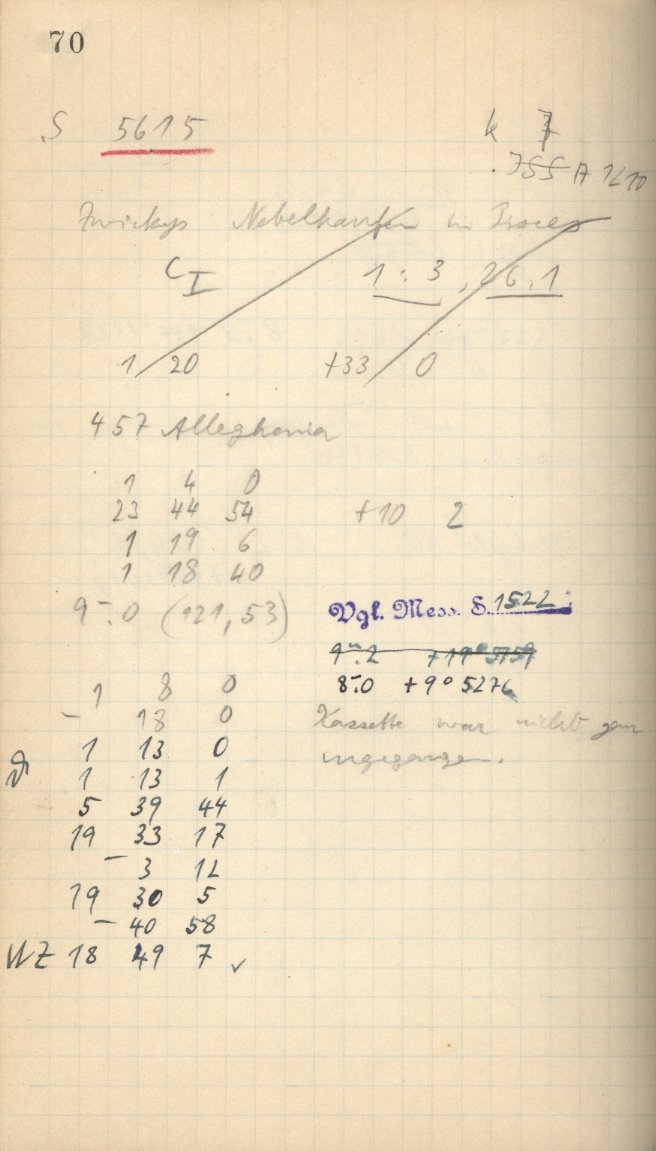 70
S 5615
k 7
A 1210
Zwickys Nebelhaufen in Pisces
C I 1 : 3 , 26,1
1 20 +33 0
457 Alleghenia
1 4 0
23 44 54 +10 2
1 19 6
1 18 40
9m.0 (121,53)
Vgl. Mess. S. 1522
9m.2
8m.0 +9° 5276
1 8 0
— 18 0
Kassette war nicht ganz
eingegangen.
1 13 0
ϑ 1 13 1
5 39 44
19 33 17
— 3 12
19 30 5
— 40 58
WZ 18 49 7 ✓